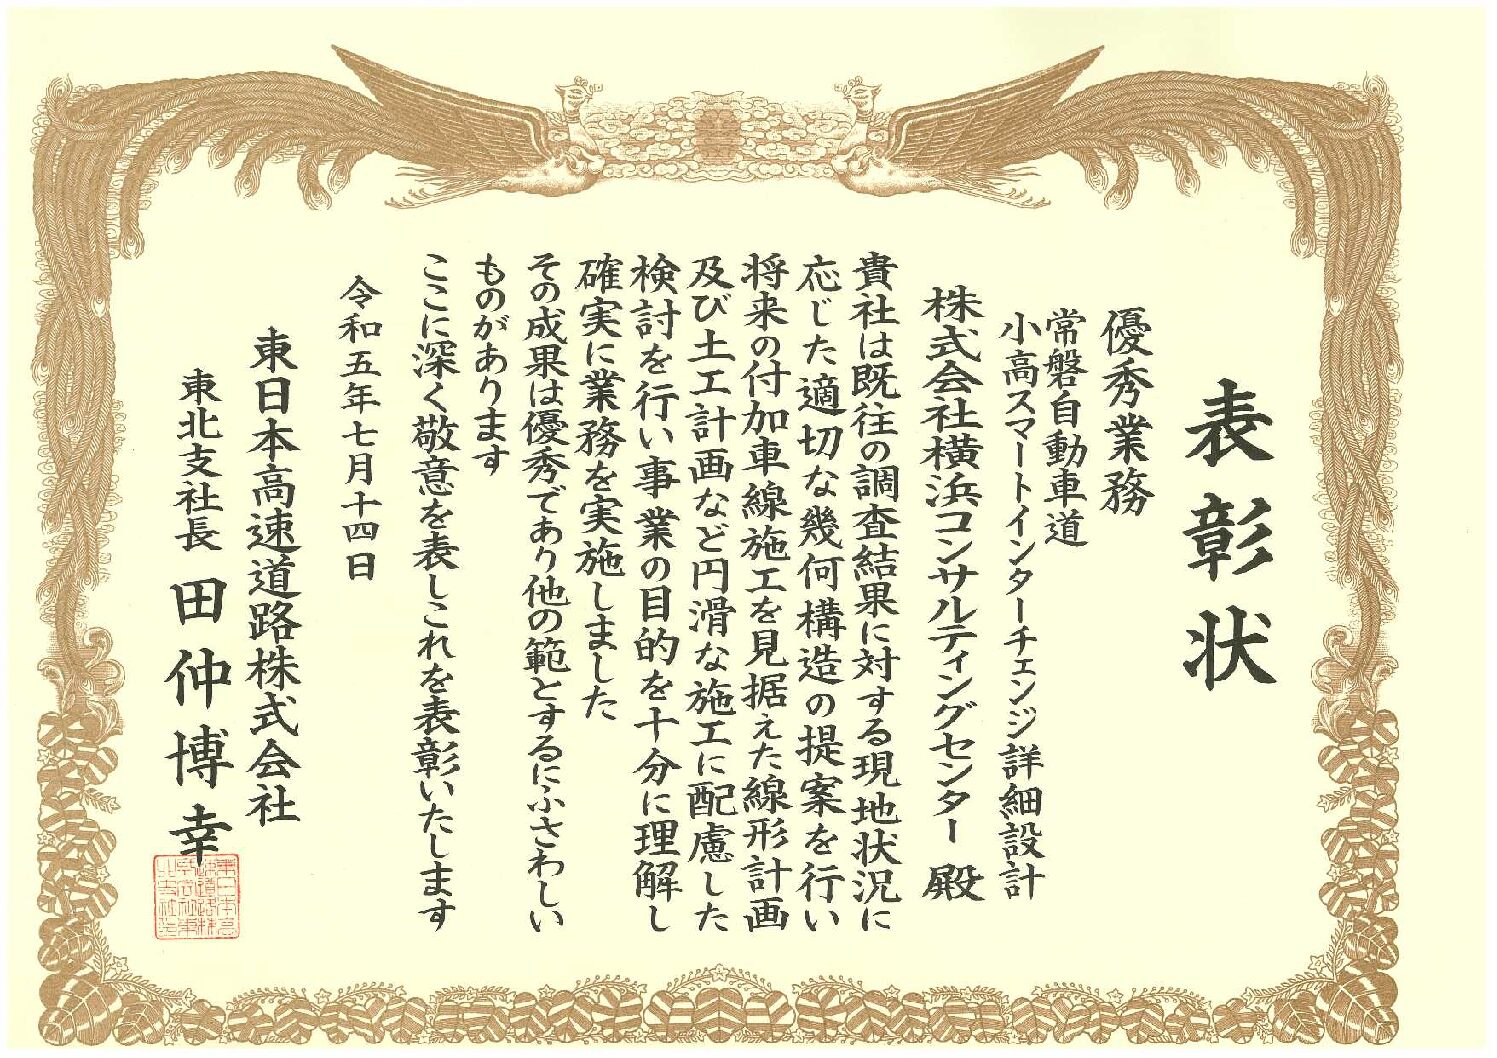 表彰状
優秀業務
常磐自動車道
小高スマートインターチェンジ詳細設計
株式会社横浜コンサルティングセンター 殿
貴社は既往の調査結果に対する現地状況に
応じた適切な幾何構造の提案を行い
将来の付加車線施工を見据えた線形計画
及び土工計画など円滑な施工に配慮した
検討を行い事業の目的を十分に理解し
確実に業務を実施しました
その成果は優秀であり他の範とするにふさわしい
ものがあります
ここに深く敬意を表しこれを表彰いたします
令和五年七月十四日
東日本高速道路株式会社
東北支社長 田仲博幸